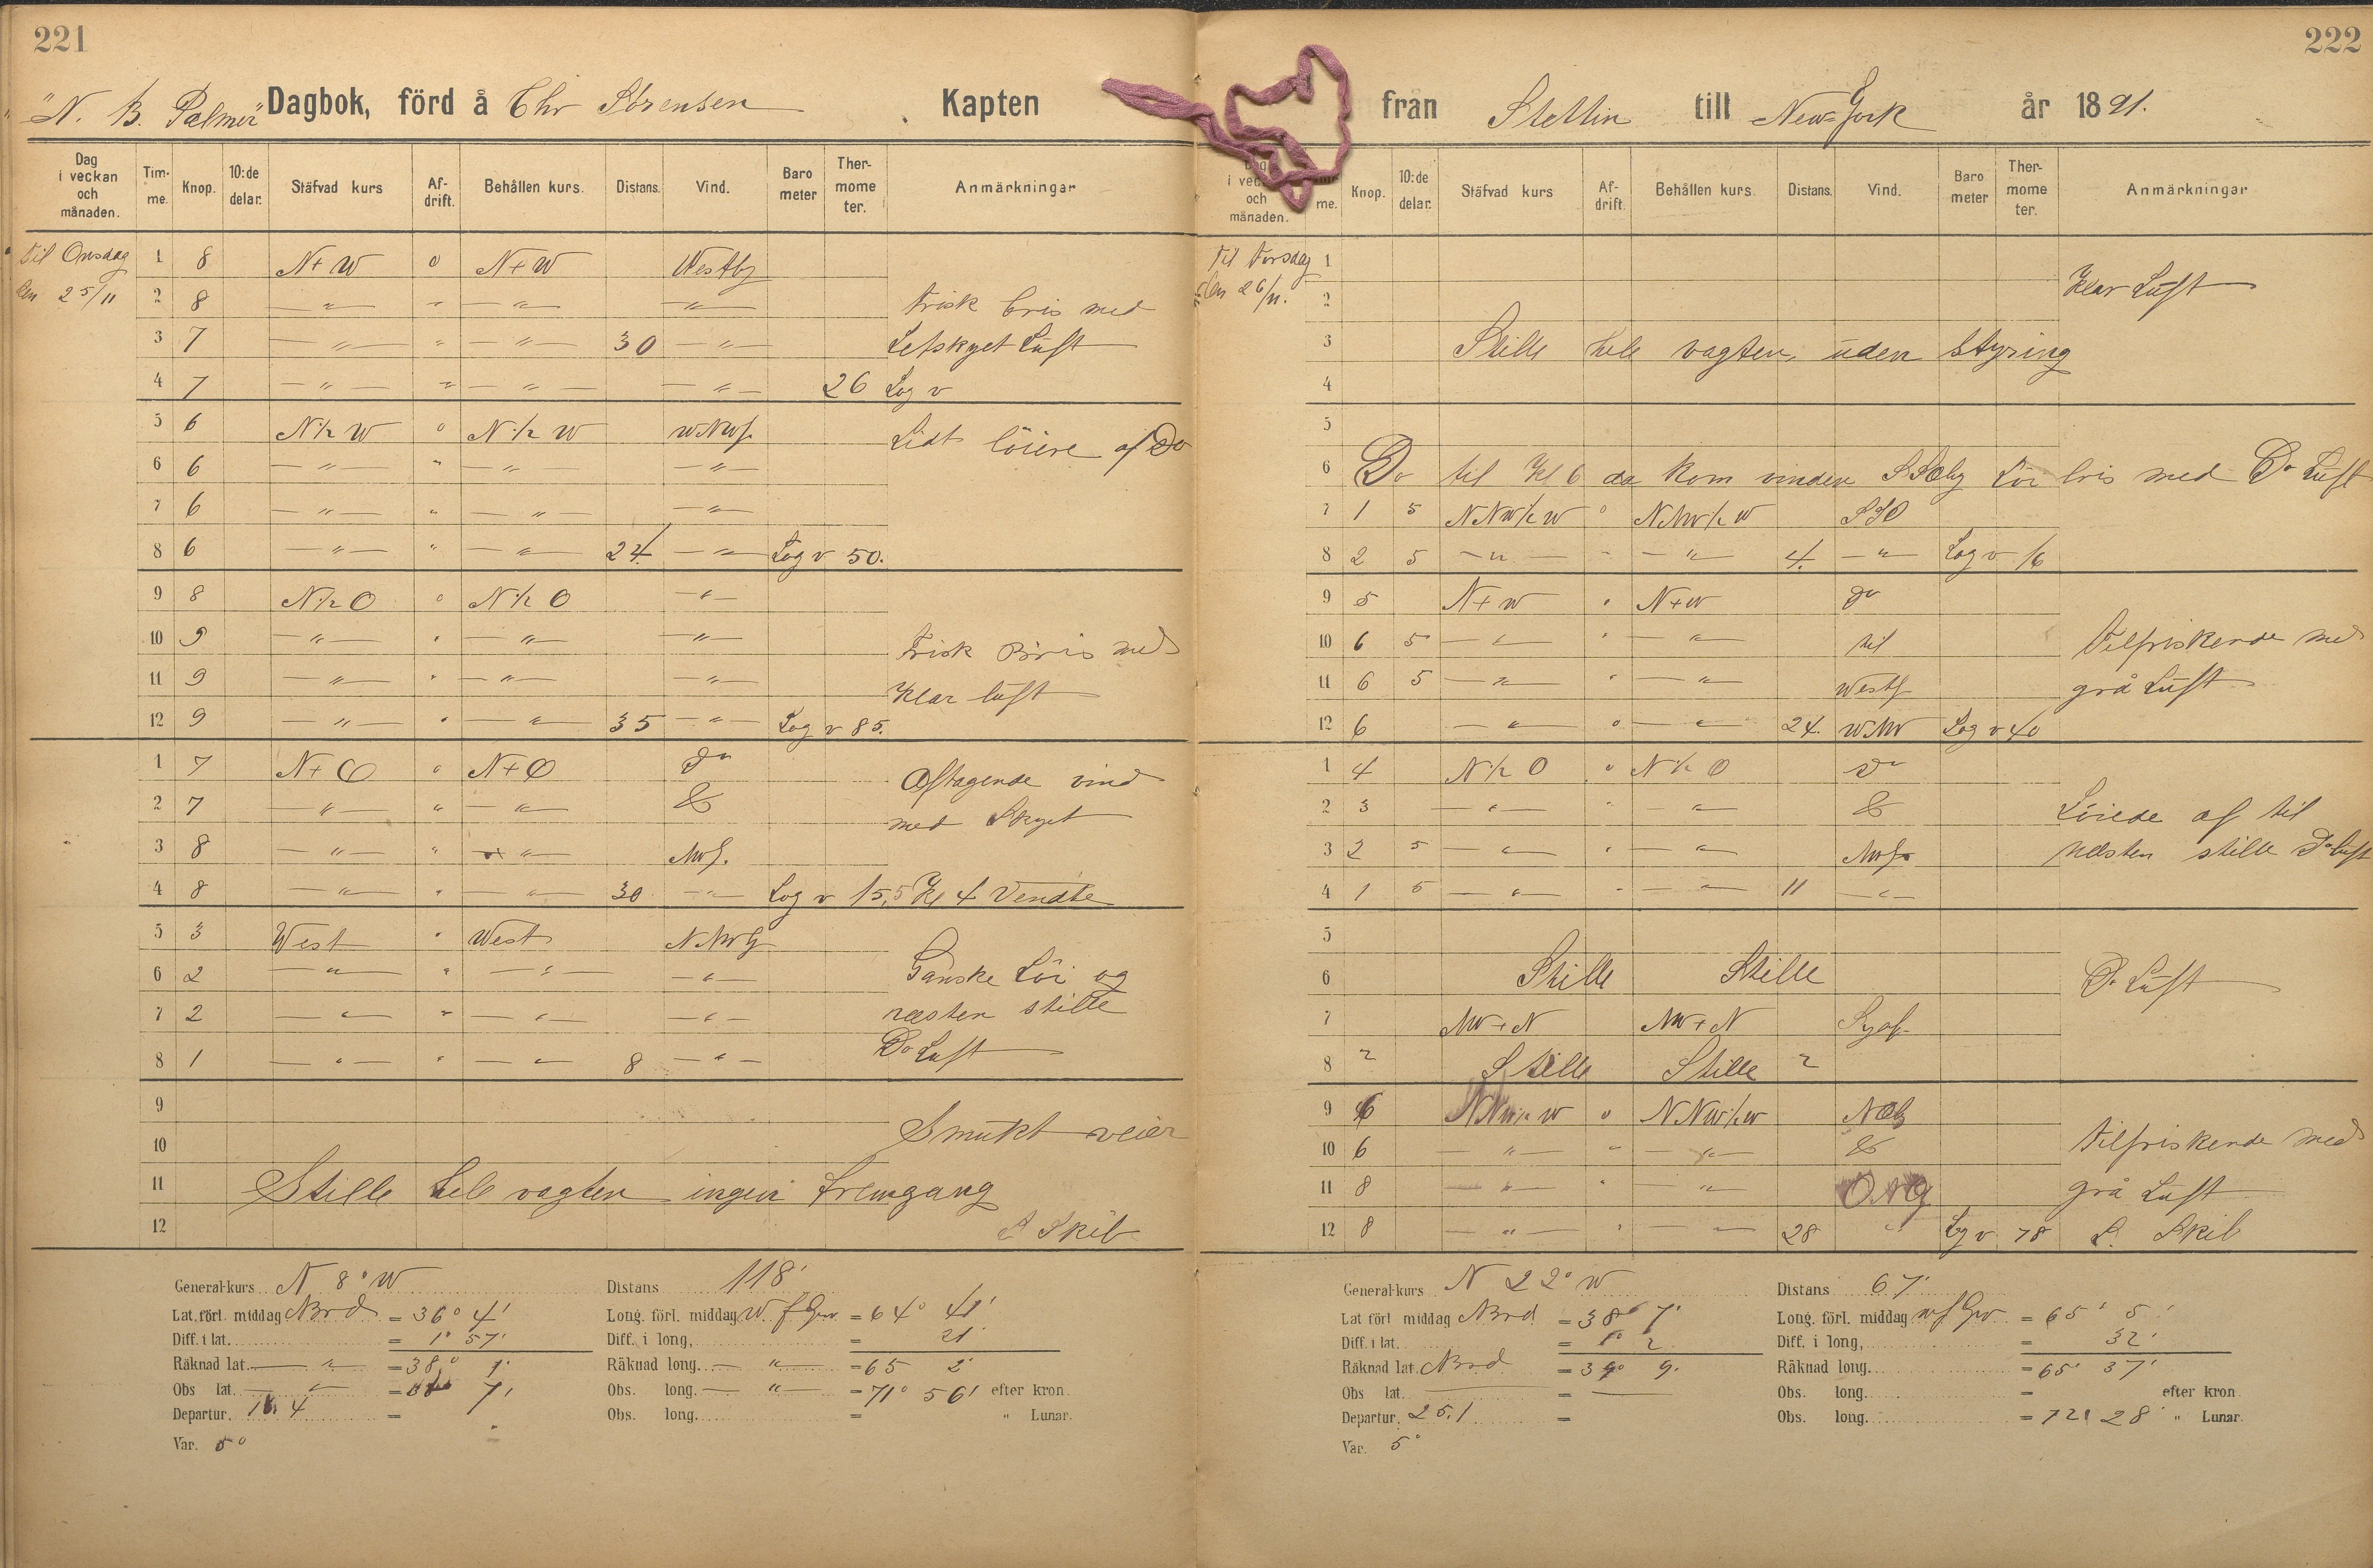 221
"N. B. Palmer" Dagbok, förd å Chr Sörensen Kapten
Dag i veckan och månaden. Tim-me. Knop. 10:de delar. Stäfvad kurs Af-drift. Behållen kurs. Distans. Vind. Baro meter Ther-mome ter. Anmärkningar
til Onsdag 1 8 N+W o N+W Westlg
den 25/11 2 8 — " — " — " — — " — Frisk bris med
3 7 — " — " — " — 30 — " — Letskyet Luft
4 7 — " — " — " — — " — 26 Log v
5 6 N½W o N½W WNWl. Lidt löiere af Do
6 6 — " — " — " — — " —
7 6 — " — " — " — — " —
8 6 — " — " — " — 24. — " — Log v 50.
9 8 N½O o N½O — " —
10 9 — " — " — " — — " — Frisk Bris med
11 9 — " — " — " — — " — Klar luft
12 9 — " — " — " — 35 — " — Log v 85.
1 7 N+O o N+O do Aftagende vind
2 7 — " — " — " — & med Skyet
3 8 — " — " — " — NWl.
4 8 — " — " — " — 30 — " — Log v 15,5 Kl 4 Vendte
5 3 West " West NNWlg
6 2 — " — " — " — — " — Ganske Löi og
7 2 — " — " — " — — " — næsten stille
8 1 — " — " — " — 8 — " — Do Luft
9
10 Smukt veier
11 Stille hele vagten ingen fremgang
12 S Skib
General-kurs N 8° W Distans 118'
Lat. förl. middag Nord = 36° 4' Long. förl. middag W f Grw = 64° 41'
Diff. i lat. = 1° 57' Diff. i long, = 21'
Räknad lat. — " — = 38° 1' Räknad long. — " — = 65 2'
Obs lat. — " — = 38 7' Obs. long. — " — = 71° 56' efter kron.
Departur. 16.4 = Obs. long. = " Lunar.
Var. 5°
222
från Stettin till New-York år 1891.
Dag i veckan och månaden. Tim-me. Knop. 10:de delar. Stäfvad kurs Af-drift. Behållen kurs. Distans. Vind. Baro meter Ther-mome ter. Anmärkningar
Til Torsdag 1
den 26/11. 2 Klar Luft
3 Stille hele vagten uden styring
4
5
6 Do til Kl 6 da kom vinden SSOlig Löi bris med Do Luft
7 1 5 NNW½W o NNW½W SSO
8 2 5 — " — " — " — 4. — " — Log v 16
9 5 N+W " N+W do
10 6 5 — " — " — " — til Tilfriskende med
11 6 5 — " — " — " — Westl. grå Luft
12 6 — " — o — " — 24. WNW Log v 40
1 4 N½O o N½O do
2 3 — " — " — " — & Löiede af til
3 2 5 — " — " — " — NWl. næsten stille Do luft
4 1 5 — " — " — " — 11 — " —
5
6 Stille Stille Do Luft
7 NW+N NW+N
8 2 Stille Stille 2
9 6 NNW½W o NNW½W NOlg
10 6 — " — " — " — & Tilfriskende med
11 8 — " — " — " — grå Luft
12 8 — " — " — " — 28 " Log v 78 S. Skib
General-kurs N 22° W Distans 67'
Lat förl middag Nord = 38° 7' Long. förl. middag W f Grw = 65° 5'
Diff. i lat. = 1° 2 Diff. i long, = 32'
Räknad lat. Nord = 39° 9' Räknad long. = 65° 37'
Obs lat. — = — Obs. long. = efter kron.
Departur. 25.1 = Obs. long. = 72° 28' " Lunar.
Var. 5°